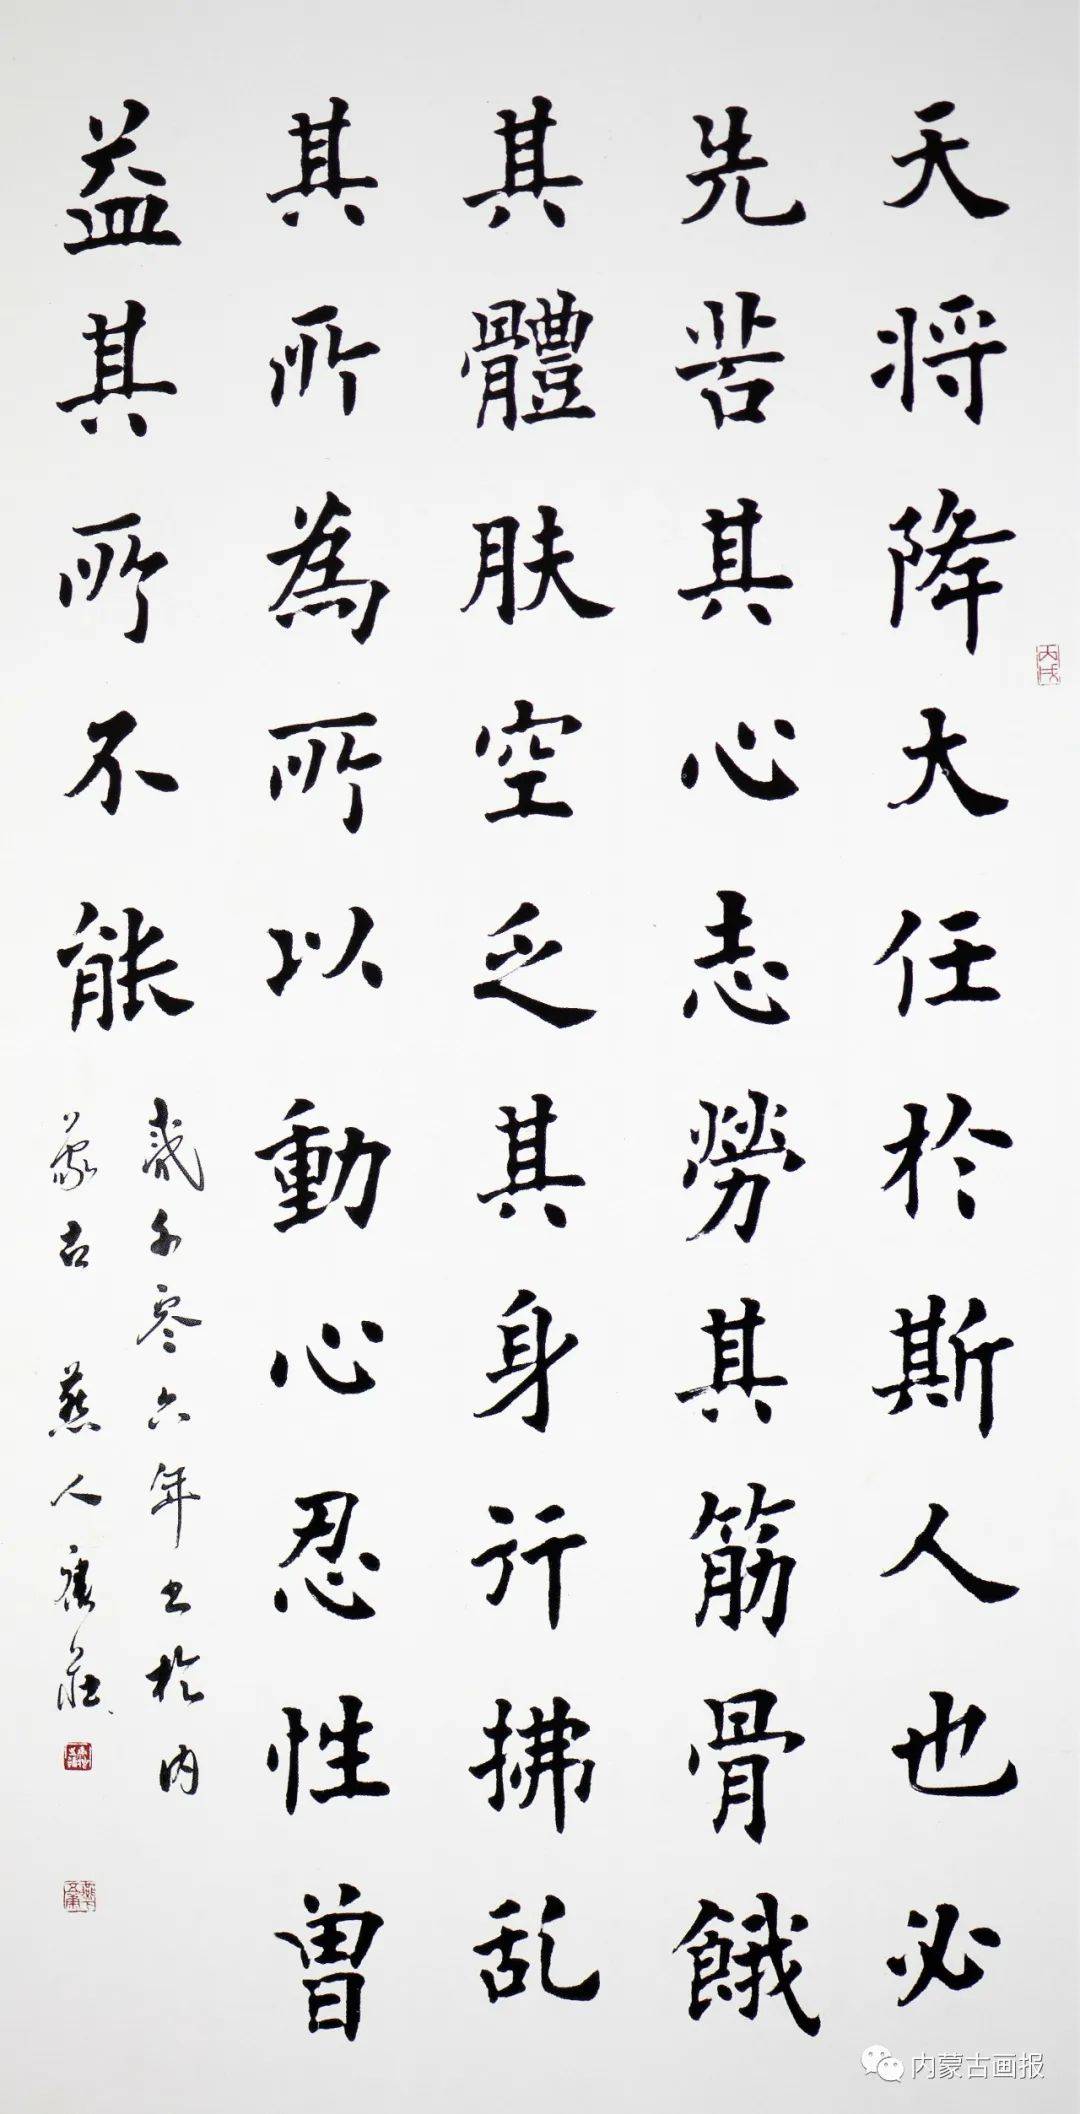 天将降大任於斯人也必
先苦其心志勞其筋骨餓
其體肤空乏其身行拂乱
其所為所以動心忍性曾
益其所不能
貳千零六年书於内
蒙古燕人
丙戌
内蒙古画报